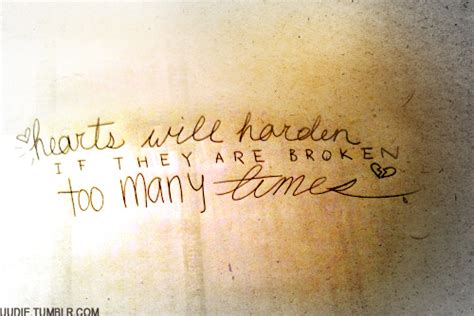 hearts will harden
IF THEY ARE BROKEN
too many times
UUDIE.TUMBLR.COM